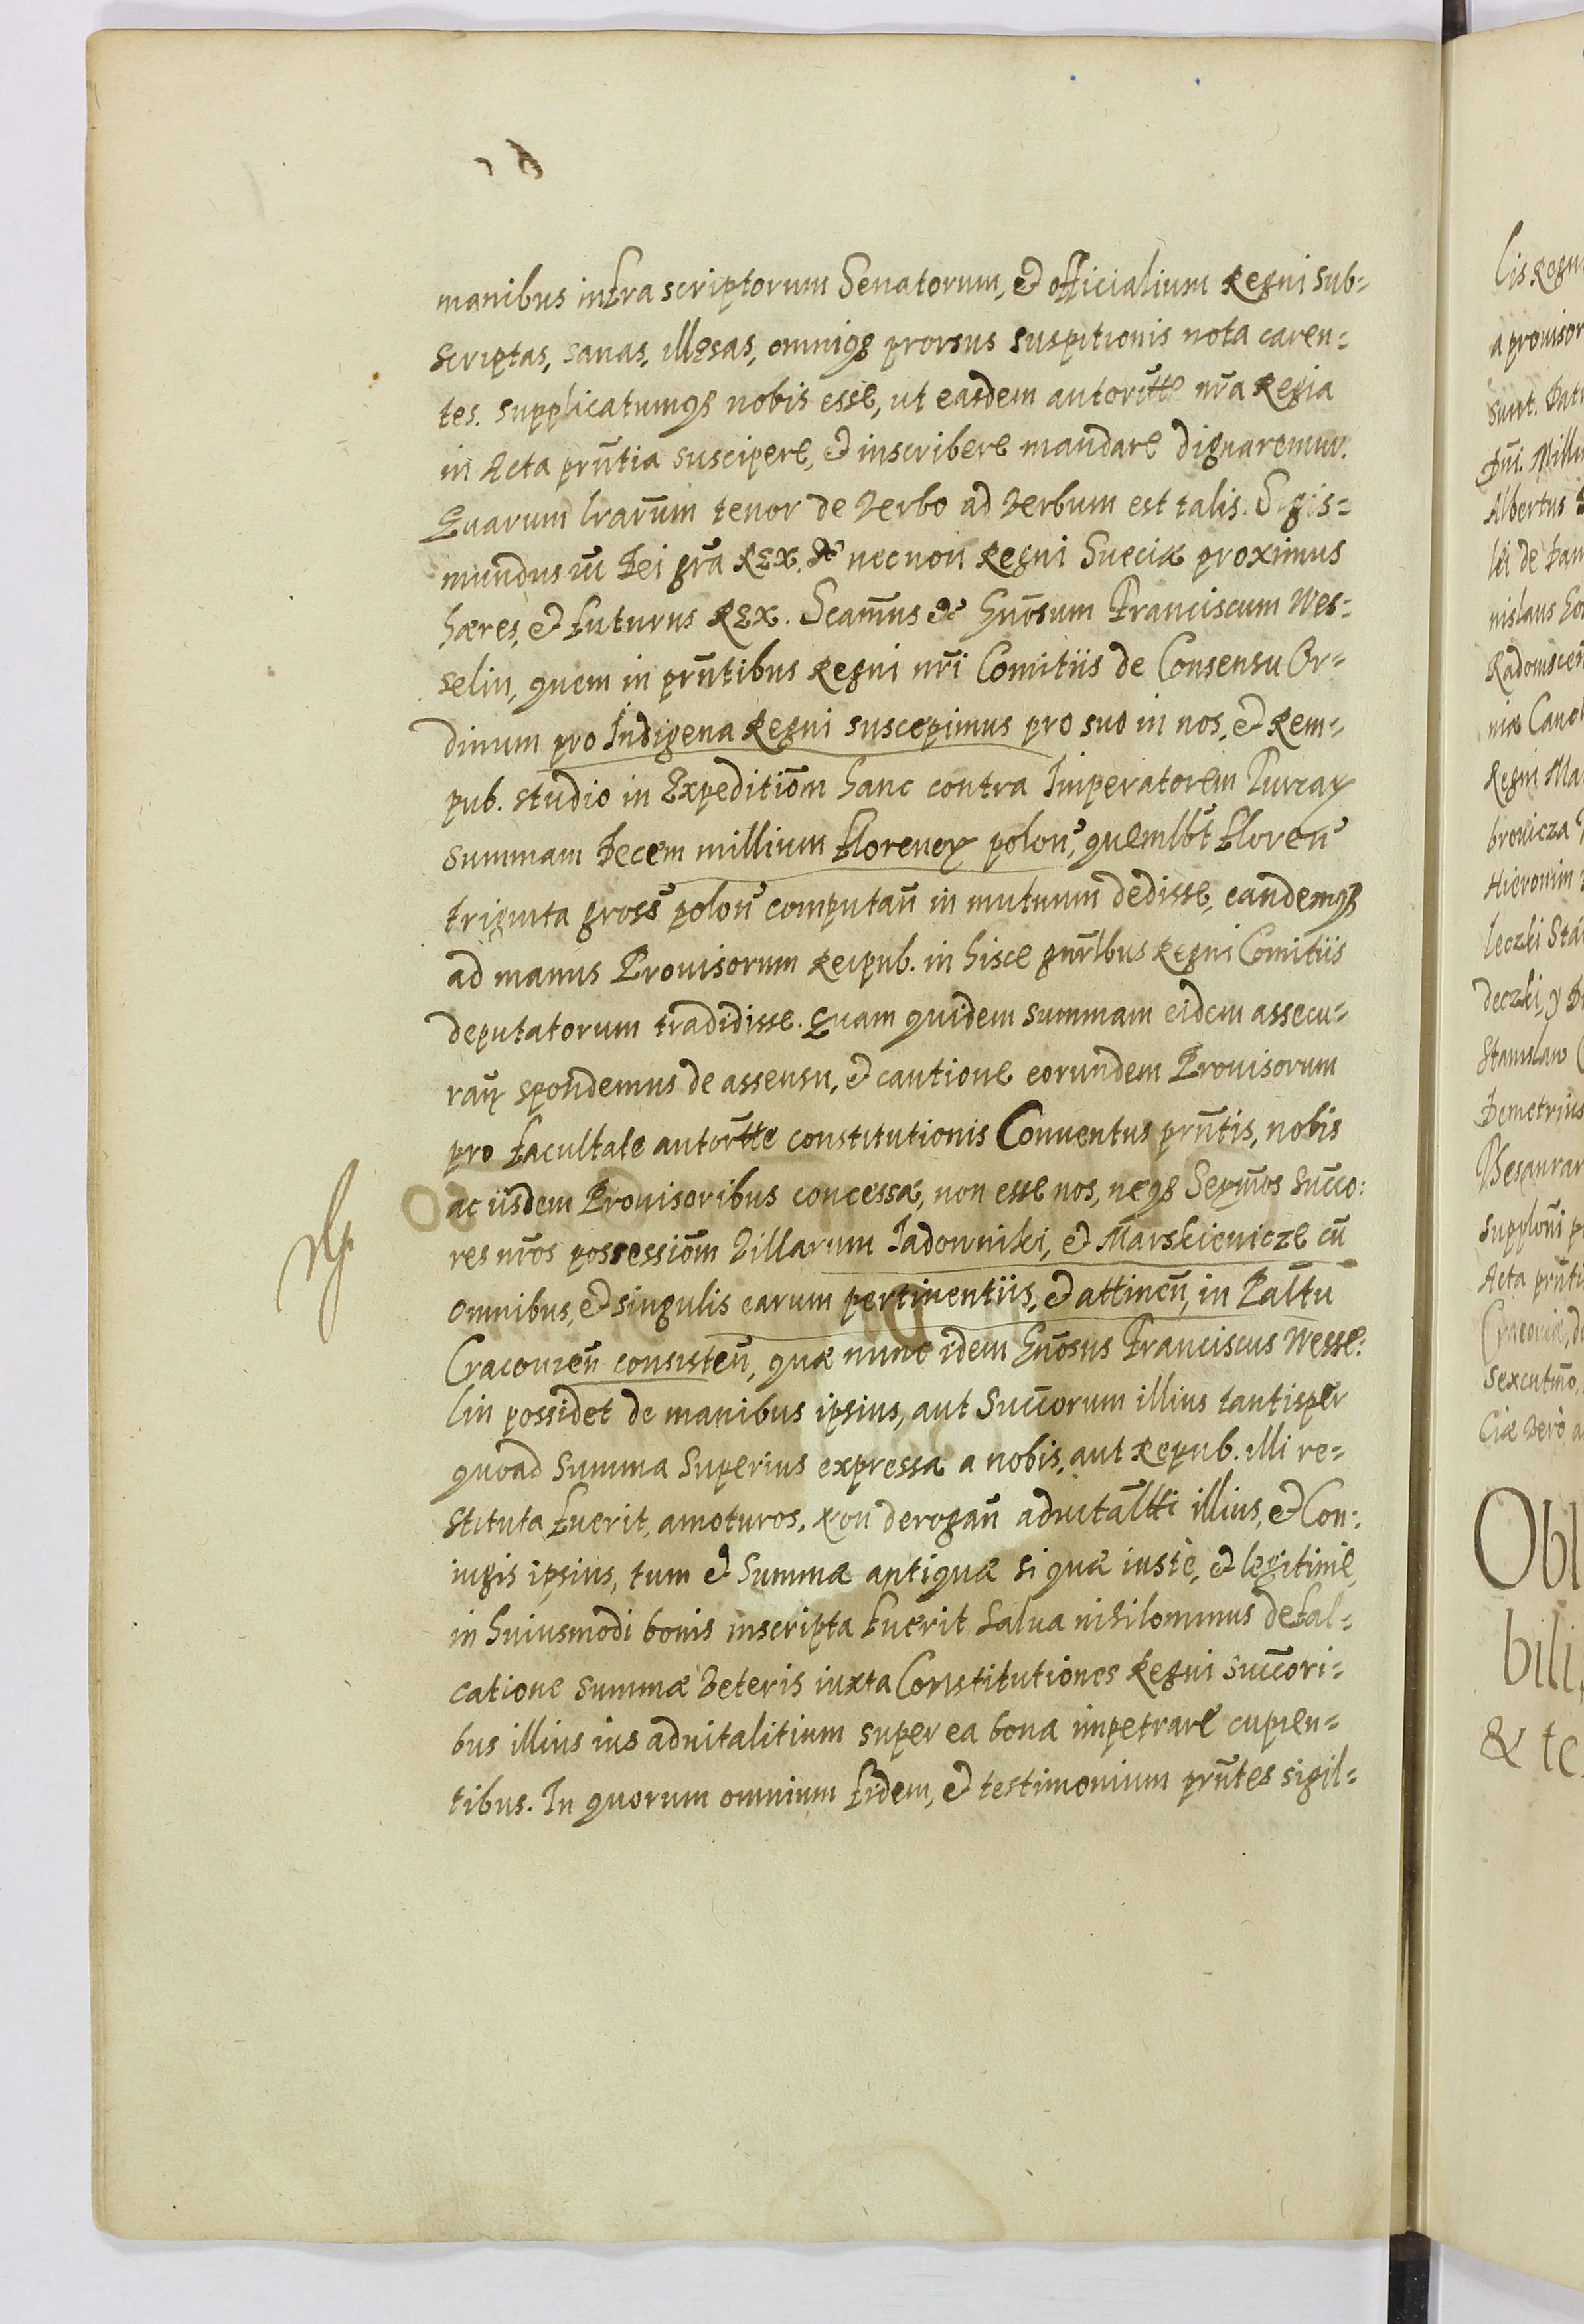 manibus infra scriptorum Senatorum, et officialium Regni sub=
scriptas, sanas, illęsas, omniq; prorsus suspitionis nota caren=
tes. supplicatumq; nobis esse, ut easdem autoritte nr̃a Regia
in Acta prñtia suscipere, et inscribere mandare dignaremur.
Quarum lrarum̃ tenor de verbo ad verbum est talis. Sigis=
mundus iii Dei gr̃a REX. etc necnon Regni Sueciæ proximus
hæres, et futurus REX. Scam̃us etc Gnõsum Franciscum Wes=
selin, quem in prñtibus Regni nr̃i Comitiis de Consensu Or=
dinum pro Indigena Regni suscepimus pro suo in nos, et Rem=
pub. studio in Expeditiõm hanc contra Imperatorem Turcaꝝ
summam Decem millium florenoꝝ polon̄, quemlbt̃ floren̄
triginta gross̃ polon̄ computan̄ in mutuum dedisse, eandemq;
ad manus Prouisorum Reipub. in hisce gnr̃lbus Regni Comitiis
deputatorum tradidisse. Quam quidem summam eidem assecu=
ran̄ spondemus de assensu, et cautione eorundem Prouisorum
pro facultate autor̃tte constitutionis Conuentus prñtis, nobis
ac iisdem Prouisoribus concessæ, non esse nos, neq; Serm̃os Succo:
res nr̃os possessiõm Villarum Jadowniki, et Marskieuicze cũ
omnibus, et singulis earum pertinentiis, et attinen̄, in Palt̃tu
Cracouien̄ consisten̄, quæ nunc idem Gnõsus Franciscus Wesse:
lin possidet de manibus ipsius, aut Succ̃orum illius tantisper
quoad Summa Superius expressa a nobis, aut Repub. illi re=
stituta fuerit, amoturos. Non derogan̄ aduitalt̃ti illius, et Con:
iugis ipsius, tum et Summæ antiquæ si quæ iuste, et legitime
in huiusmodi bonis inscripta fuerit Salua nihilominus defal=
catione summæ veteris iuxta Constitutiones Regni succ̃ori=
bus illius ius aduitalitium super ea bona impetrare cupien=
tibus. In quorum omnium fidem, et testimonium prñtes sigil=
lis Regn
a prouisor
sunt. Dat
Dñi. Mill
Albertus
nislaus
niæ
Regni Ma
Hieronim
leczki Sta
deczki, y
Stanislaw
Demetrius
Thesaurar
Acta prñti
Cracouiæ, d
Obl
bili
& te